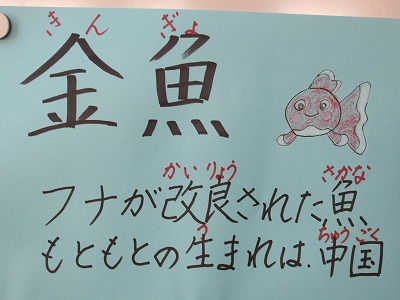 きん ぎょ
金魚
かいりょう さかな
フナが改良された魚
う ちゅうごく
もともとの生まれは、中国